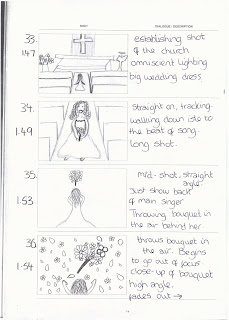 SHOT
DIALOGUE / DESCRIPTION
33.
1.47
establishing shot
of the church
omniscient lighting
big wedding dress.
34.
1.49
Straight on, tracking.
walking down isle to
the beat of song.
long shot.
35.
1.53
mid-shot, straight
angle.
Just show back
of main singer
Throwing bouquet in
the air behind her.
36.
1.54
throws bouquet in
the air. Begins
to go out of focus
close-up of bouquet
high angle.
fades out →